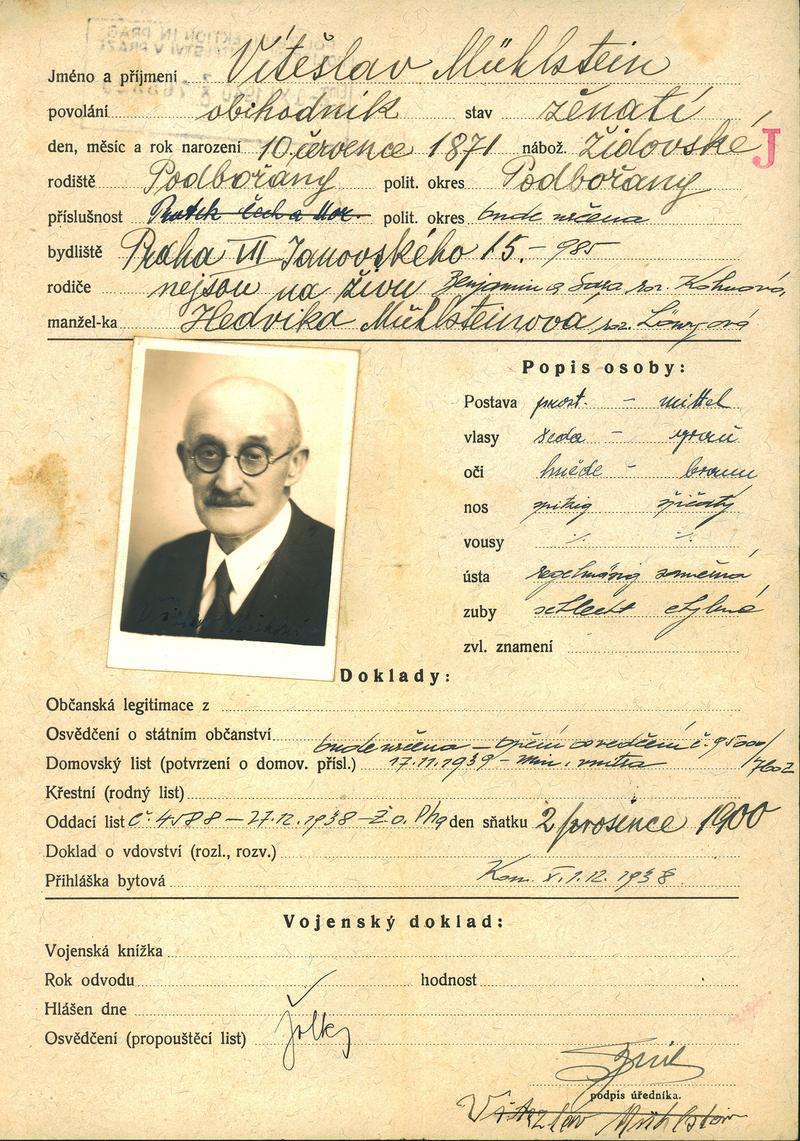 Jméno a příjmení Vítěslav Mühlstein
povolání obchodník stav ženatí
den, měsíc a rok narození 10. července 1871 nábož. židovské J
rodiště Podbořany polit. okres Podbořany
příslušnost Protek. Čech a Mor. polit. okres bude určena
bydliště Praha VII Janovského 15.- 985
rodiče nejsou na živu Benjamin a Sara roz. Kohnová,
manžel-ka Hedvika Mühlsteinová roz. Löwyová
Popis osoby:
Postava prost. - mittel
vlasy šedé - grau
oči hnědé - braun
nos spitzig špičatý
vousy ./. ./.
ústa regelmässig souměrná
zuby schlecht chybné
zvl. znamení
Doklady:
Občanská legitimace z
Osvědčení o státním občanství bude určena - osvědčení č.
Domovský list (potvrzení o domov. přísl.) 17.11.1939 - Min. vnitra
Křestní (rodný list)
Oddací list č. 4588 - 27.12.1938 - Ž.o. Phg den sňatku 2 prosince 1900
Doklad o vdovství (rozl., rozv.)
Přihláška bytová Kom. X. 1.12. 1938
Vojenský doklad:
Vojenská knížka
Rok odvodu hodnost
Hlášen dne
Osvědčení (propouštěcí list)
podpis úředníka.
Vítězslav Mühlstein